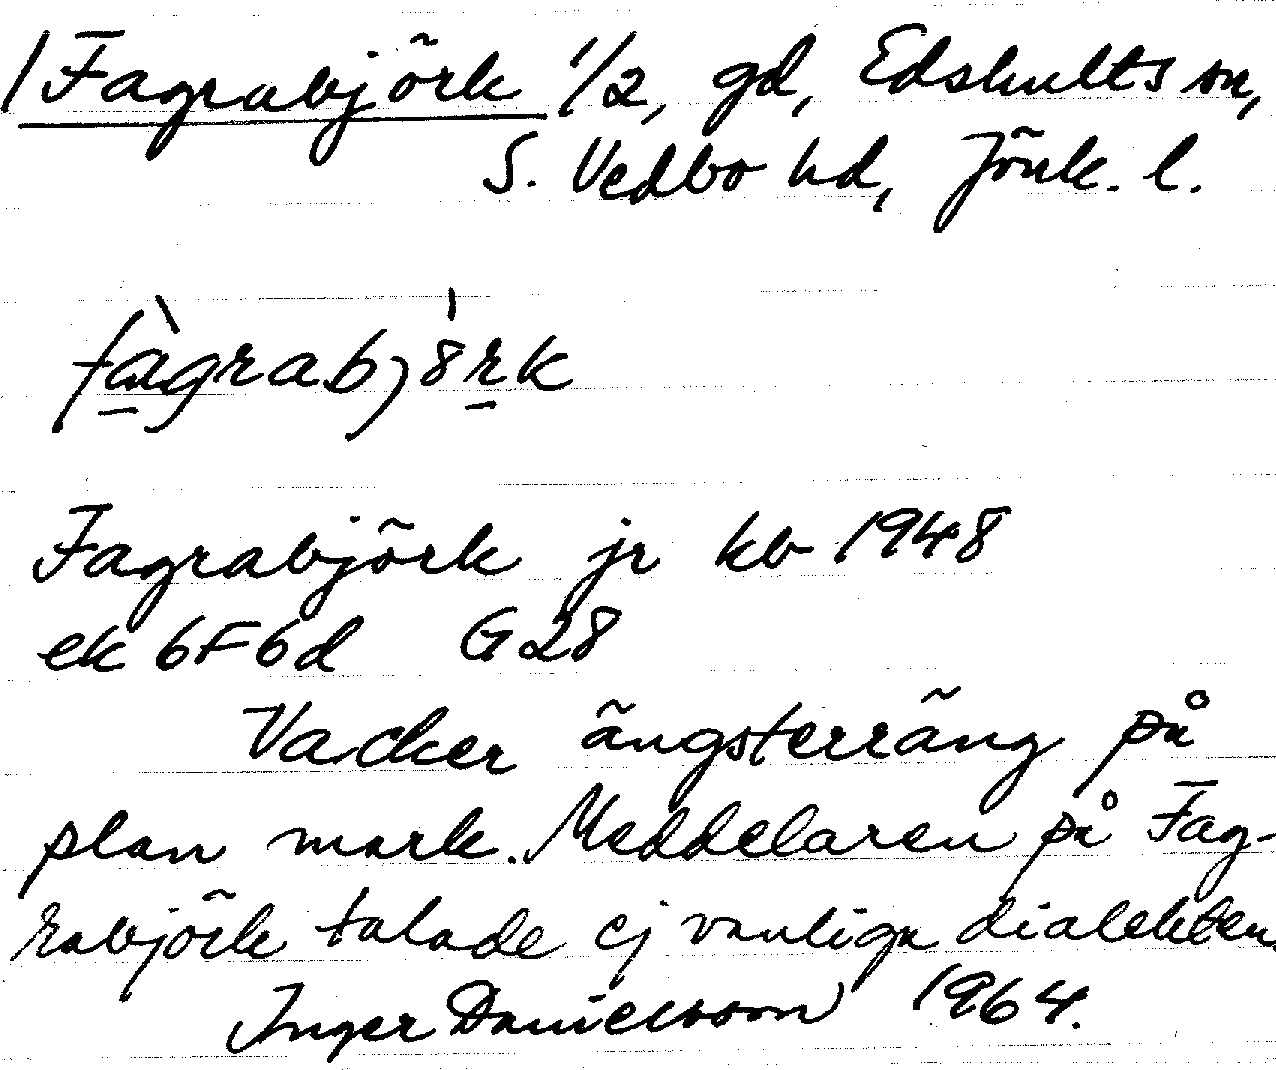 /Fagrabjörk 1/2, gd, Edshults sn,
S. Vedbo hd, Jönk. l.
fàgrabjörk
Fagrabjörk jr kb 1948
ek 6F6d G28
Vacker ängsterräng på
plan mark. Meddelaren på Fag-
rabjörk talade ej vanliga dialekten.
Inger Danielsson 1964.